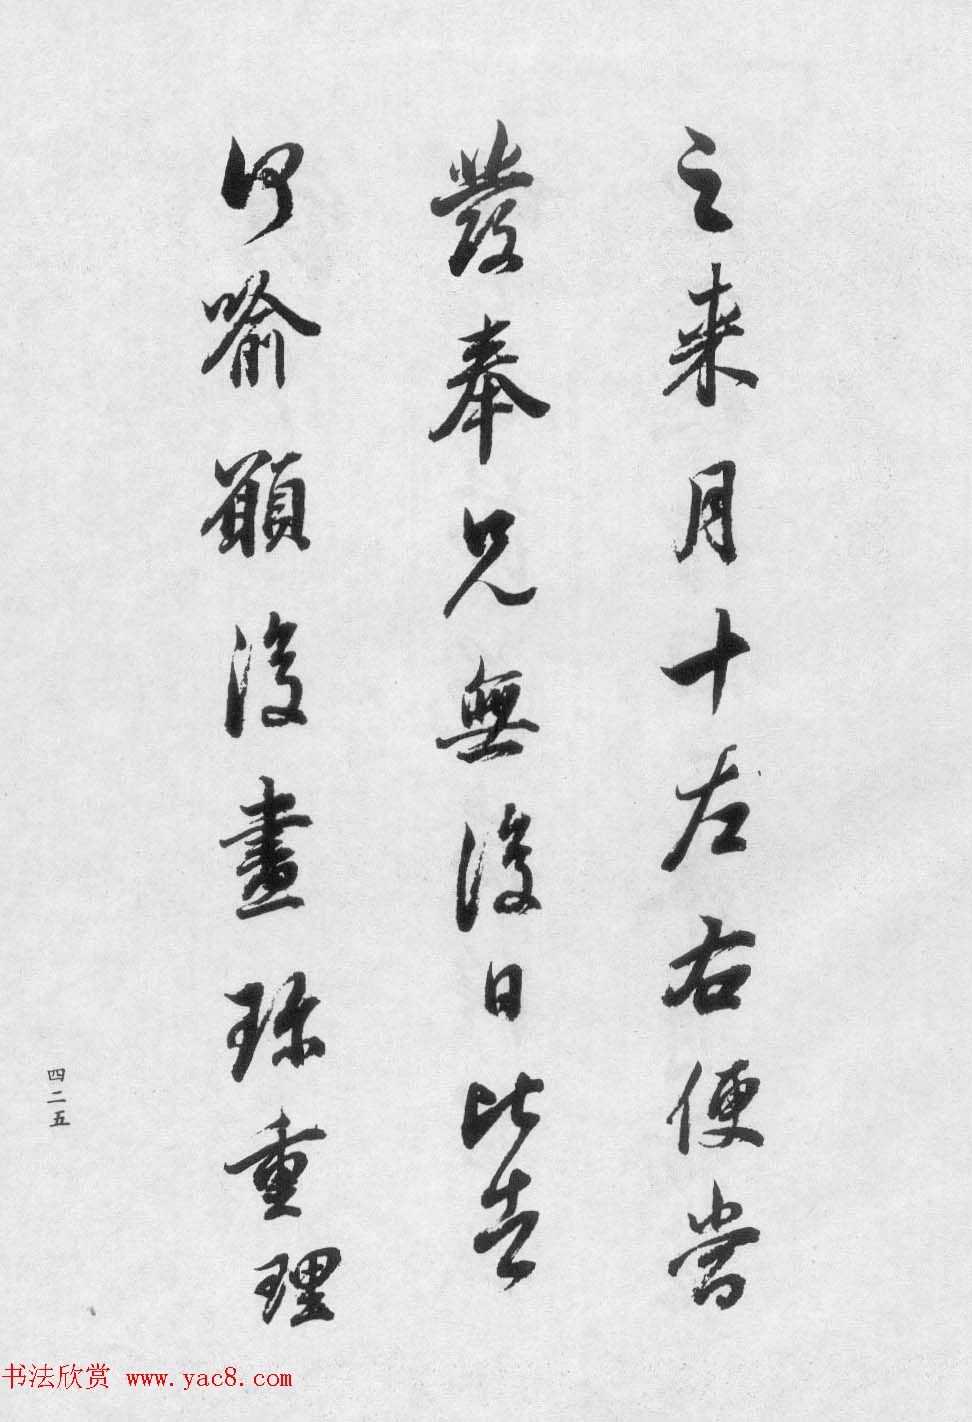 之来月十左右便當
發奉兄無復日比告
何喻願復盡珎重理
四二五
书法欣赏 www.yac8.com